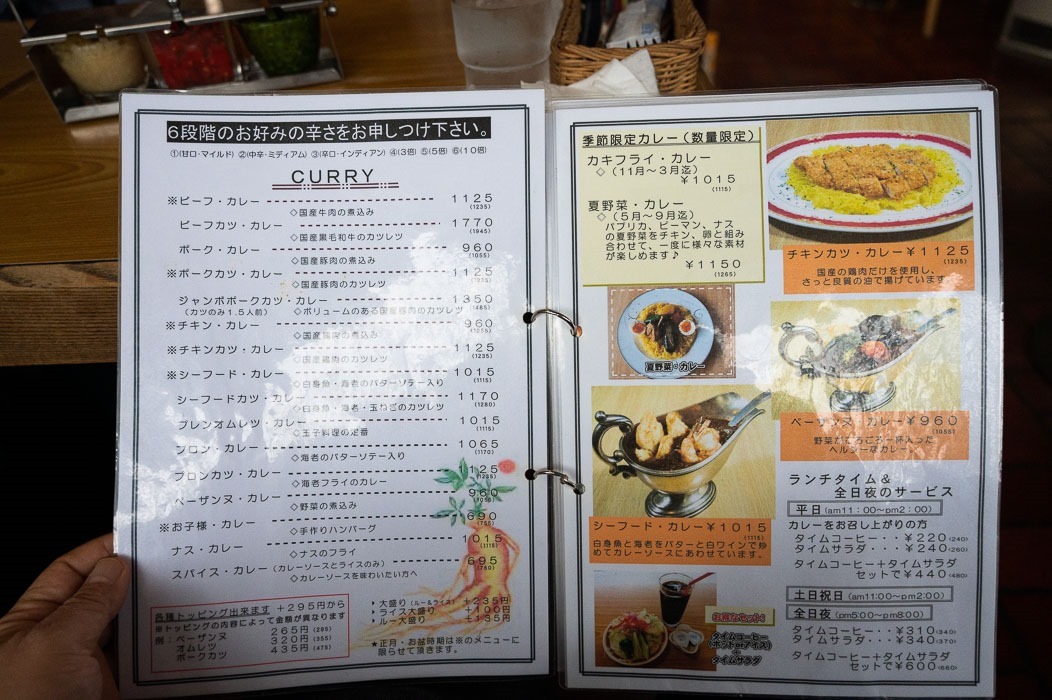 6段階のお好みの辛さをお申しつけ下さい。
①(甘口・マイルド) ②(中辛・ミディアム) ③(辛口・インディアン) ④(3倍) ⑤(5倍) ⑥(10倍)
CURRY
※ビーフ・カレー 1125 (1235)
◇国産牛肉の煮込み
ビーフカツ・カレー 1770 (1945)
◇国産黒毛和牛のカツレツ
ポーク・カレー 960 (1055)
◇国産豚肉の煮込み
※ポークカツ・カレー 1125 (1235)
◇国産豚肉のカツレツ
ジャンボポークカツ・カレー 1350 (1485)
(カツのみ1.5人前) ◇ボリュームのある国産豚肉のカツレツ
※チキン・カレー 960 (1055)
◇国産鶏肉の煮込み
※チキンカツ・カレー 1125 (1235)
◇国産鶏肉のカツレツ
※シーフード・カレー 1015 (1115)
◇白身魚・海老のバターソテー入り
シーフードカツ・カレー 1170 (1280)
◇白身魚・海老・玉ねぎのカツレツ
プレンオムレツ・カレー 1015 (1115)
◇玉子料理の定番
プロン・カレー 1065 (1170)
◇海老のバターソテー入り
プロンカツ・カレー 1125 (1235)
◇海老フライのカレー
ペーザンヌ・カレー 960 (1055)
◇野菜の煮込み
※お子様・カレー 690 (755)
◇手作りハンバーグ
ナス・カレー 1015 (1115)
◇ナスのフライ
スパイス・カレー(カレーソースとライスのみ) 695 (760)
◇カレーソースを味わいたい方へ
各種トッピング出来ます +295円から
※トッピングの内容によって金額が異なります
例:ペーザンヌ 265円 (285)
オムレツ 320円 (355)
ポークカツ 435円 (475)
▸大盛り(ルー&ライス) +235円
▸ライス大盛り +100円
▸ルー大盛り +135円
★正月・お盆時期は※のメニューに
限らせて頂きます。
季節限定カレー(数量限定)
カキフライ・カレー
◇(11月〜3月迄)
¥1015
(1115)
夏野菜・カレー
◇(5月〜9月迄)
パプリカ、ピーマン、ナス
の夏野菜をチキン、卵と組み
合わせて、一度に様々な素材
が楽しめます♪
¥1150
(1265)
夏野菜・カレー
シーフード・カレー¥1015
(1115)
白身魚と海老をバターと白ワインで炒
めてカレーソースにあわせています。
お得なセット!
タイムコーヒー
(ホットorアイス)
+
タイムサラダ
チキンカツ・カレー¥1125
(1235)
国産の鶏肉だけを使用し、
さっと良質の油で揚げています。
ペーザンヌ・カレー¥960
(1055)
野菜がごろごろ一杯入った
ヘルシーなカレー。
ランチタイム&
全日夜のサービス
平日(am11:00〜pm2:00)
カレーをお召し上がりの方
タイムコーヒー・・・¥220(240)
タイムサラダ・・・¥240(260)
タイムコーヒー+タイムサラダ
セットで¥440(480)
土日祝日(am11:00〜pm2:00)
全日夜(pm5:00〜pm8:00)
タイムコーヒー・・・¥310(340)
タイムサラダ・・・¥340(370)
タイムコーヒー+タイムサラダ
セットで¥600(660)